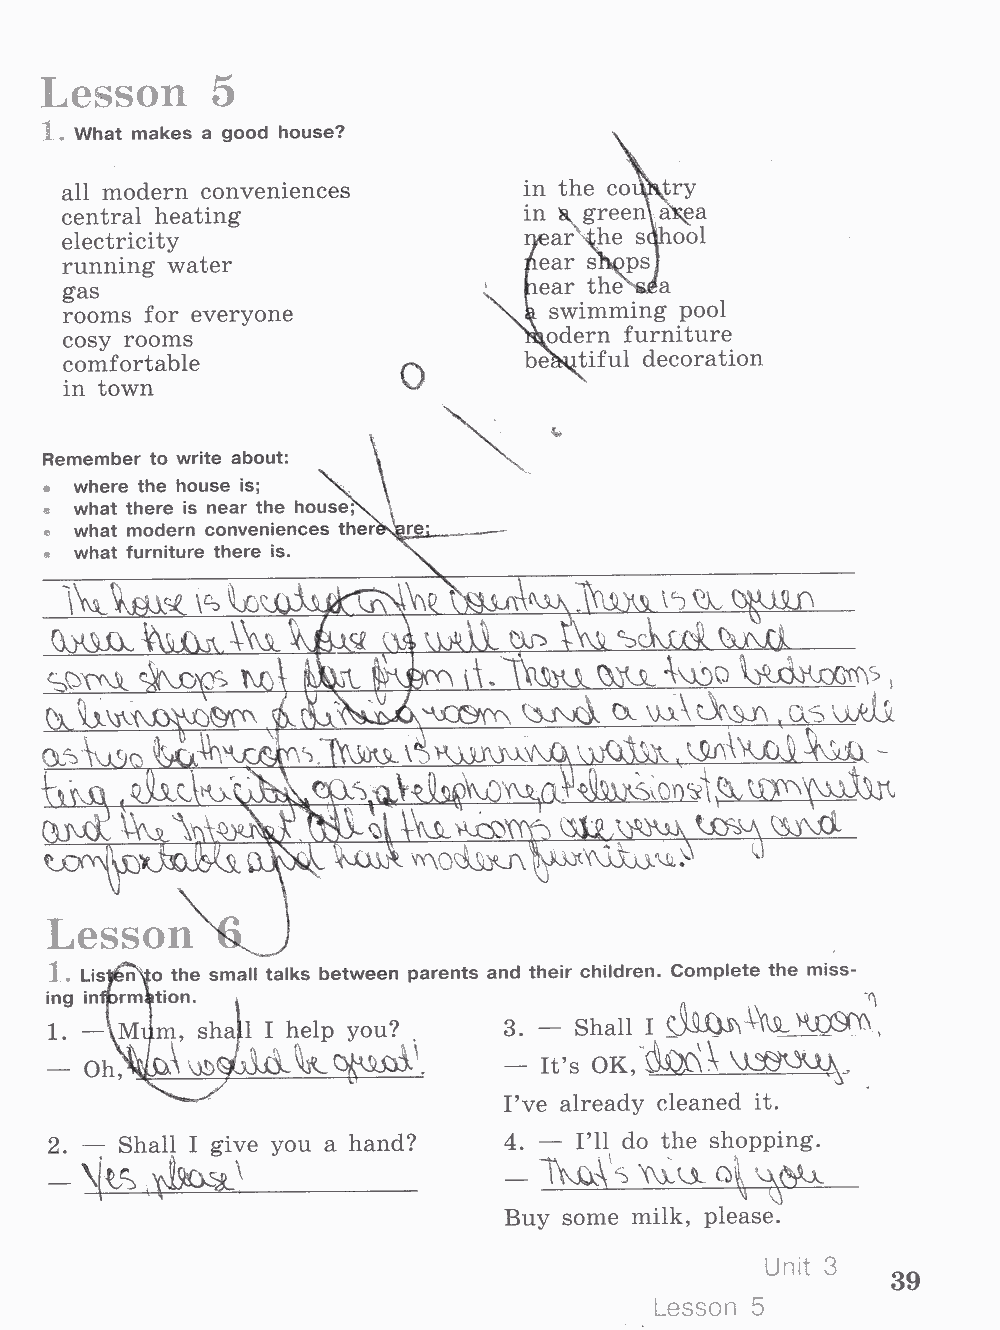 Lesson 5
1. What makes a good house?
all modern conveniences
central heating
electricity
running water
gas
rooms for everyone
cosy rooms
comfortable
in town
in the country
in a green area
near the school
near shops
near the sea
a swimming pool
modern furniture
beautiful decoration
Remember to write about:
• where the house is;
• what there is near the house;
• what modern conveniences there are;
• what furniture there is.
The house is located in the country. There is a green
area near the house as well as the school and
some shops not far from it. There are two bedrooms,
a living room, a dining room and a kitchen, as well
as two bathrooms. There is running water, central hea-
ting, electricity, gas, a telephone, a television set, a computer
and the Internet. All of the rooms are very cosy and
comfortable and have modern furniture.
Lesson 6
1. Listen to the small talks between parents and their children. Complete the miss-
ing information.
1. — Mum, shall I help you?
— Oh, that would be great!
2. — Shall I give you a hand?
— Yes, please!
3. — Shall I clean the room?
— It's OK, don't worry.
I've already cleaned it.
4. — I'll do the shopping.
— That's nice of you
Buy some milk, please.
Unit 3
39
Lesson 5